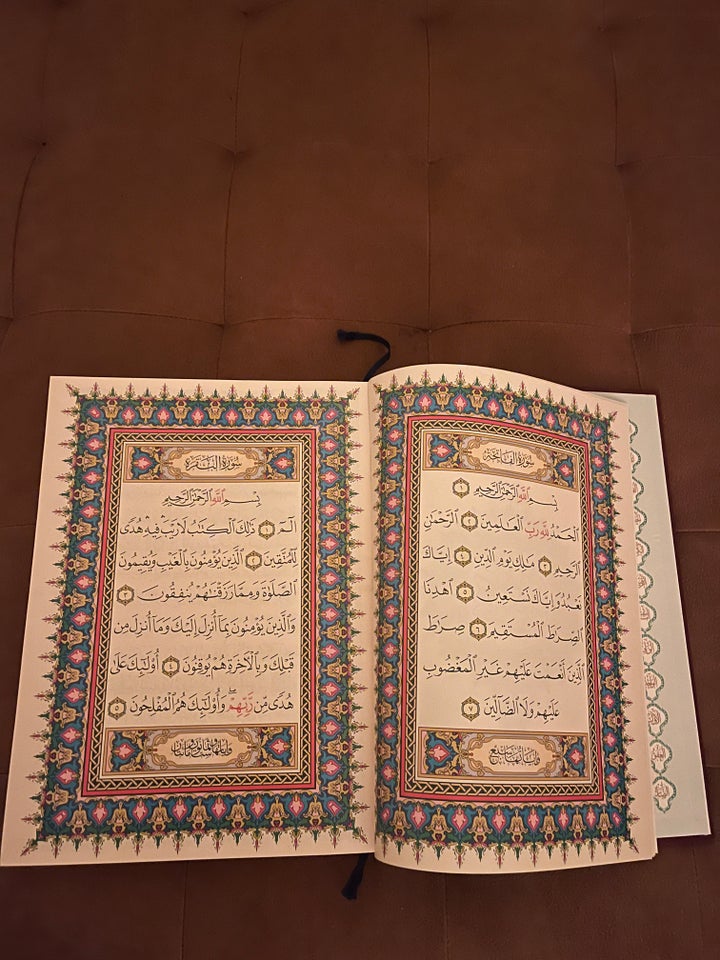 سُورَةُ الفَاتِحَةِ
بِسْمِ ٱللَّهِ ٱلرَّحْمَٰنِ ٱلرَّحِيمِ ١
ٱلْحَمْدُ لِلَّهِ رَبِّ ٱلْعَٰلَمِينَ ٢ ٱلرَّحْمَٰنِ
ٱلرَّحِيمِ ٣ مَٰلِكِ يَوْمِ ٱلدِّينِ ٤ إِيَّاكَ
نَعْبُدُ وَإِيَّاكَ نَسْتَعِينُ ٥ ٱهْدِنَا
ٱلصِّرَٰطَ ٱلْمُسْتَقِيمَ ٦ صِرَٰطَ
ٱلَّذِينَ أَنْعَمْتَ عَلَيْهِمْ غَيْرِ ٱلْمَغْضُوبِ
عَلَيْهِمْ وَلَا ٱلضَّآلِّينَ ٧
وَآيَاتُهَا سَبْع
سُورَةُ البَقَرَةِ
بِسْمِ ٱللَّهِ ٱلرَّحْمَٰنِ ٱلرَّحِيمِ
الٓمٓ ١ ذَٰلِكَ ٱلْكِتَٰبُ لَا رَيْبَ ۛ فِيهِ ۛ هُدًى
لِّلْمُتَّقِينَ ٢ ٱلَّذِينَ يُؤْمِنُونَ بِٱلْغَيْبِ وَيُقِيمُونَ
ٱلصَّلَوٰةَ وَمِمَّا رَزَقْنَٰهُمْ يُنفِقُونَ ٣
وَٱلَّذِينَ يُؤْمِنُونَ بِمَآ أُنزِلَ إِلَيْكَ وَمَآ أُنزِلَ مِن
قَبْلِكَ وَبِٱلْءَاخِرَةِ هُمْ يُوقِنُونَ ٤ أُو۟لَٰٓئِكَ عَلَىٰ
هُدًى مِّن رَّبِّهِمْ ۖ وَأُو۟لَٰٓئِكَ هُمُ ٱلْمُفْلِحُونَ ٥